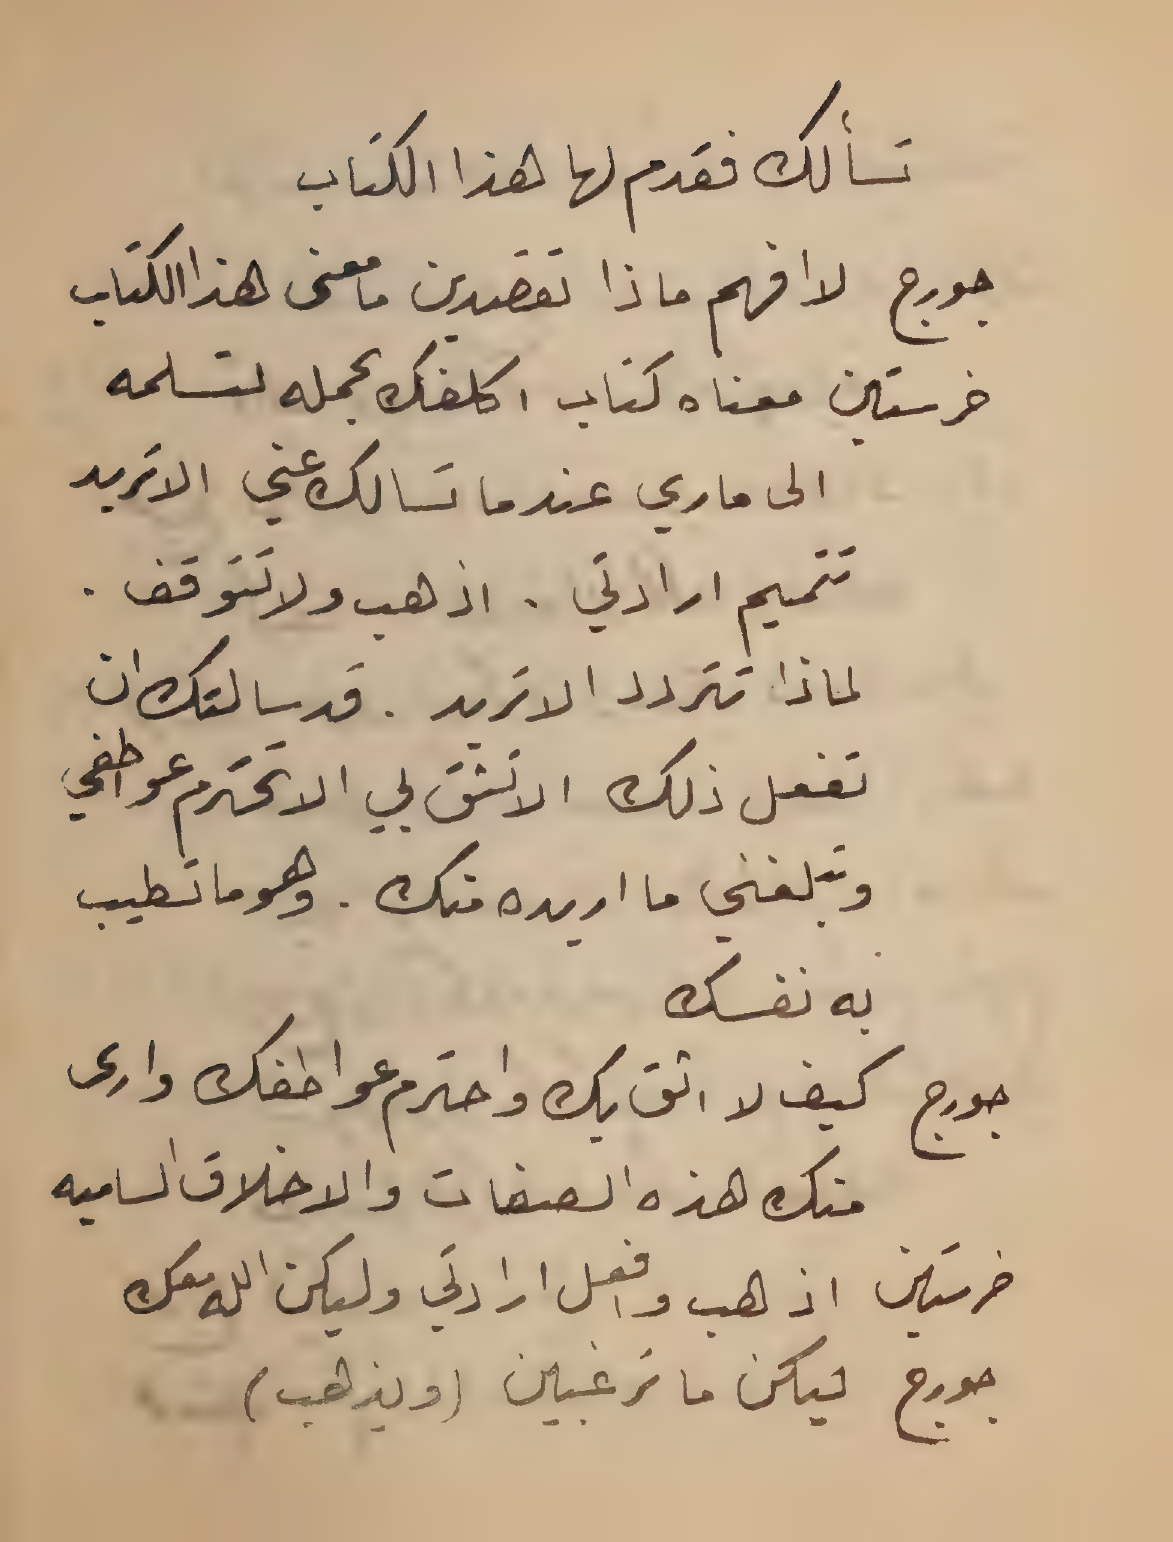 تسألك فقدم لها هذا الكتاب
جورج لا افهم ماذا تقصدين ما معنى هذا الكتاب
خرستين معناه كتاب اكلفك بحمله لتسلمه
الى ماري عندما تسالك عني الا تريد
تتميم ارادتي . اذهب ولا تتوقف .
لماذا تتردد الا تريد . قد سالتك ان
تفعل ذلك الا تثق بي الا تحترم عواطفي
وتبلغني ما اريده منك . وهو ما تطيب
به نفسك
جورج كيف لا اثق بك واحترم عواطفك وارى
منك هذه الصفات والاخلاق الساميه
خرستين اذهب وافعل ارادتي وليكن الله معك
جورج ليكن ما ترغبين (ويذهب)